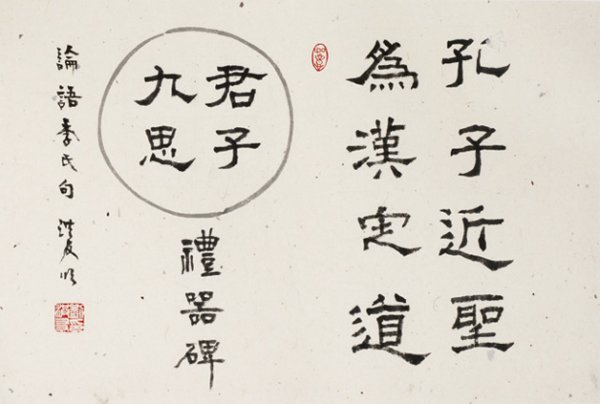 孔子近聖
為漢定道
君子
九思
禮器碑
論語季氏句